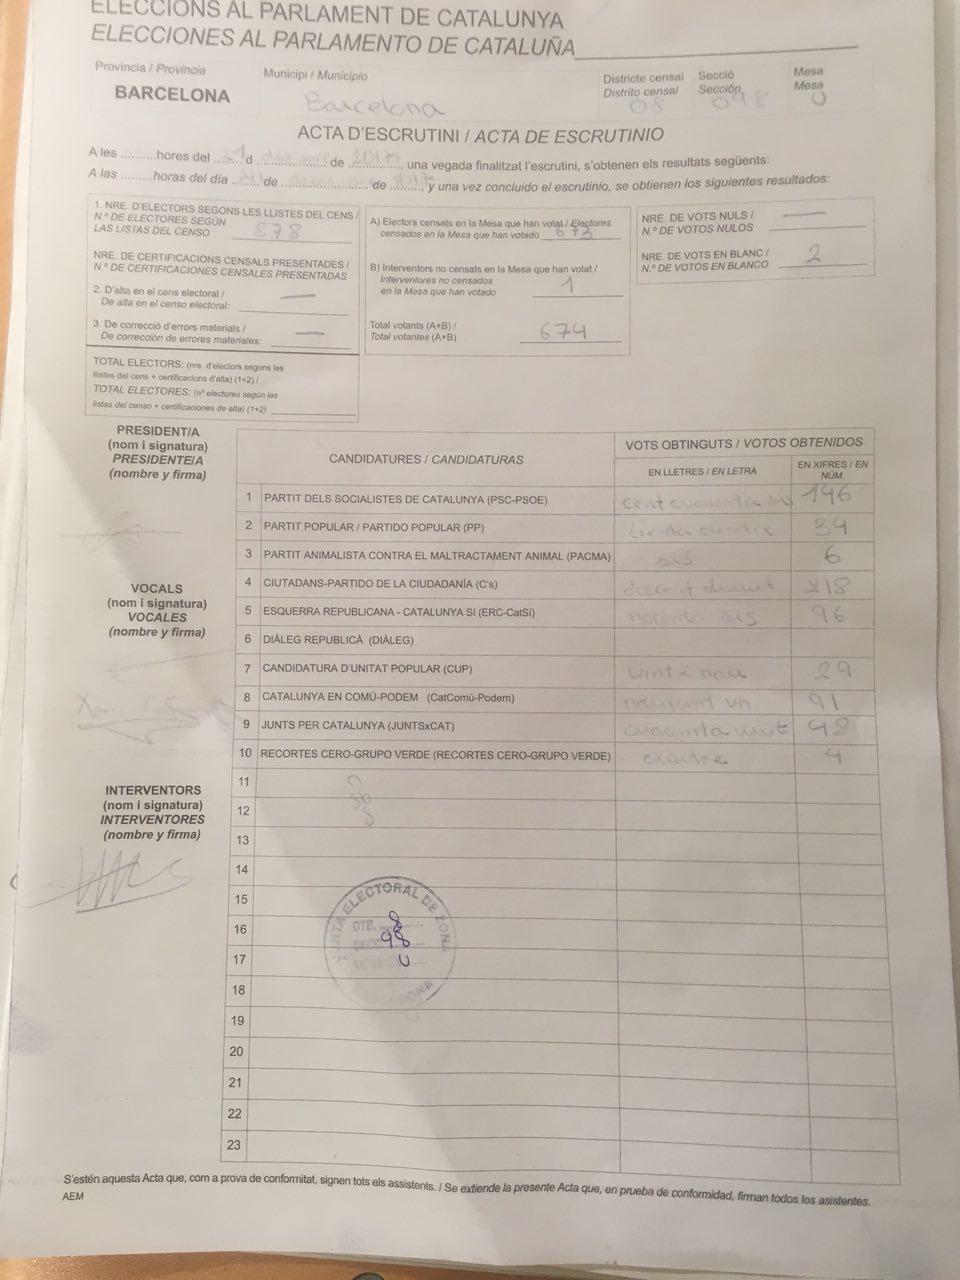 ELECCIONS AL PARLAMENT DE CATALUNYA
ELECCIONES AL PARLAMENTO DE CATALUÑA
Provincia / Provincia
BARCELONA
Municipi / Municipio
Barcelona
Districte censal
Distrito censal
08
Secció
Sección
098
Mesa
Mesa
U
ACTA D'ESCRUTINI / ACTA DE ESCRUTINIO
A les .........hores del 21 d ................ de 2017, una vegada finalitzat l'escrutini, s'obtenen els resultats següents:
A las .........horas del día ...... de ...................... de ........, y una vez concluido el escrutinio, se obtienen los siguientes resultados:
1. NRE. D'ELECTORS SEGONS LES LLISTES DEL CENS /
N.º DE ELECTORES SEGÚN
LAS LISTAS DEL CENSO 878
NRE. DE CERTIFICACIONS CENSALS PRESENTADES /
N.º DE CERTIFICACIONES CENSALES PRESENTADAS
2. D'alta en el cens electoral /
De alta en el censo electoral: —
3. De correcció d'errors materials /
De corrección de errores materiales: —
TOTAL ELECTORS: (nre. d'electors segons les
llistes del cens + certificacions d'alta) (1+2) /
TOTAL ELECTORES: (nº electores según las
listas del censo + certificaciones de alta) (1+2)
A) Electors censats en la Mesa que han votat / Electores
censados en la Mesa que han votado 673
B) Interventors no censats en la Mesa que han votat /
Interventores no censados
en la Mesa que han votado 1
Total votants (A+B) /
Total votantes (A+B) 674
NRE. DE VOTS NULS /
N.º DE VOTOS NULOS —
NRE. DE VOTS EN BLANC /
N.º DE VOTOS EN BLANCO 2
PRESIDENT/A
(nom i signatura)
PRESIDENTE/A
(nombre y firma)
VOCALS
(nom i signatura)
VOCALES
(nombre y firma)
INTERVENTORS
(nom i signatura)
INTERVENTORES
(nombre y firma)
CANDIDATURES / CANDIDATURAS
VOTS OBTINGUTS / VOTOS OBTENIDOS
EN LLETRES / EN LETRA
EN XIFRES / EN
NÚM.
1 PARTIT DELS SOCIALISTES DE CATALUNYA (PSC-PSOE) cent cuaranta sis 146
2 PARTIT POPULAR / PARTIDO POPULAR (PP) trenta cuatre 34
3 PARTIT ANIMALISTA CONTRA EL MALTRACTAMENT ANIMAL (PACMA) sis 6
4 CIUTADANS-PARTIDO DE LA CIUDADANÍA (C's) 218
5 ESQUERRA REPUBLICANA - CATALUNYA SI (ERC-CatSí) noranta sis 96
6 DIÀLEG REPUBLICÀ (DIÀLEG)
7 CANDIDATURA D'UNITAT POPULAR (CUP) vint i nou 29
8 CATALUNYA EN COMÚ-PODEM (CatComú-Podem) 91
9 JUNTS PER CATALUNYA (JUNTSxCAT) cuaranta vuit 48
10 RECORTES CERO-GRUPO VERDE (RECORTES CERO-GRUPO VERDE) cuatre 4
11
12
13
14
15
16
17
18
19
20
21
22
23
JUNTA ELECTORAL DE ZONA
DTE. 8
SECC. 98
MESA U
BARCELONA
S'estén aquesta Acta que, com a prova de conformitat, signen tots els assistents. / Se extiende la presente Acta que, en prueba de conformidad, firman todos los asistentes.
AEM